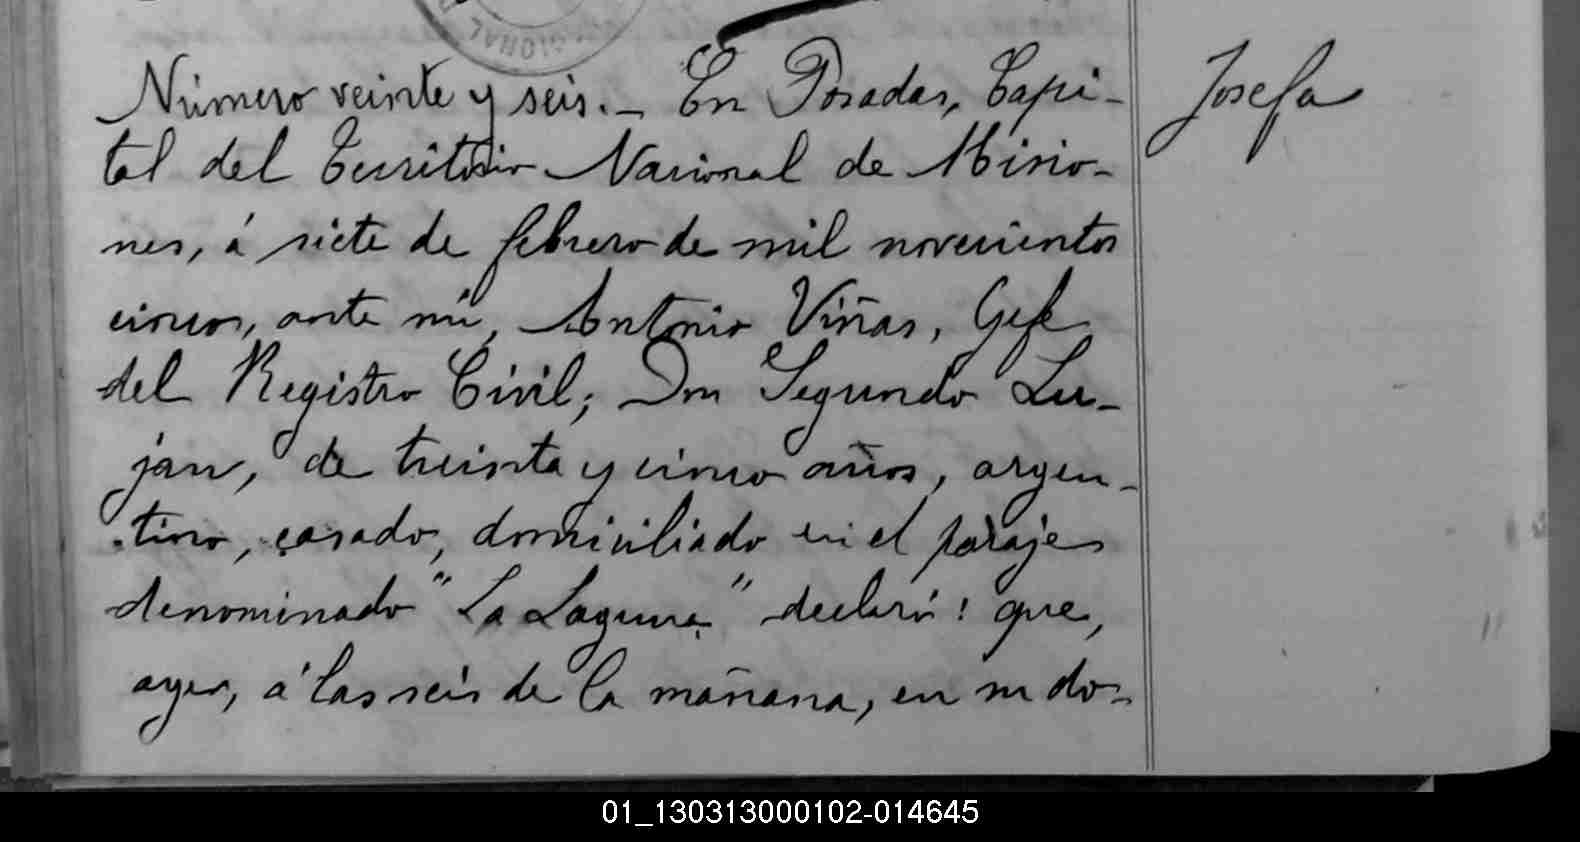 IONAL
Número veinte y seis._ En Posadas, Capi-
tal del Territorio Nacional de Misio-
nes, á siete de febrero de mil novecientos
cinco, ante mí, Antonio Viñas, Gefe
del Registro Civil; Don Segundo Lu-
jan, de treinta y cinco años, argen-
tino, casado, domiciliado en el paraje
denominado "La Laguna" declaró: que,
ayer, á las seis de la mañana, en su do-
Josefa
01_130313000102-014645